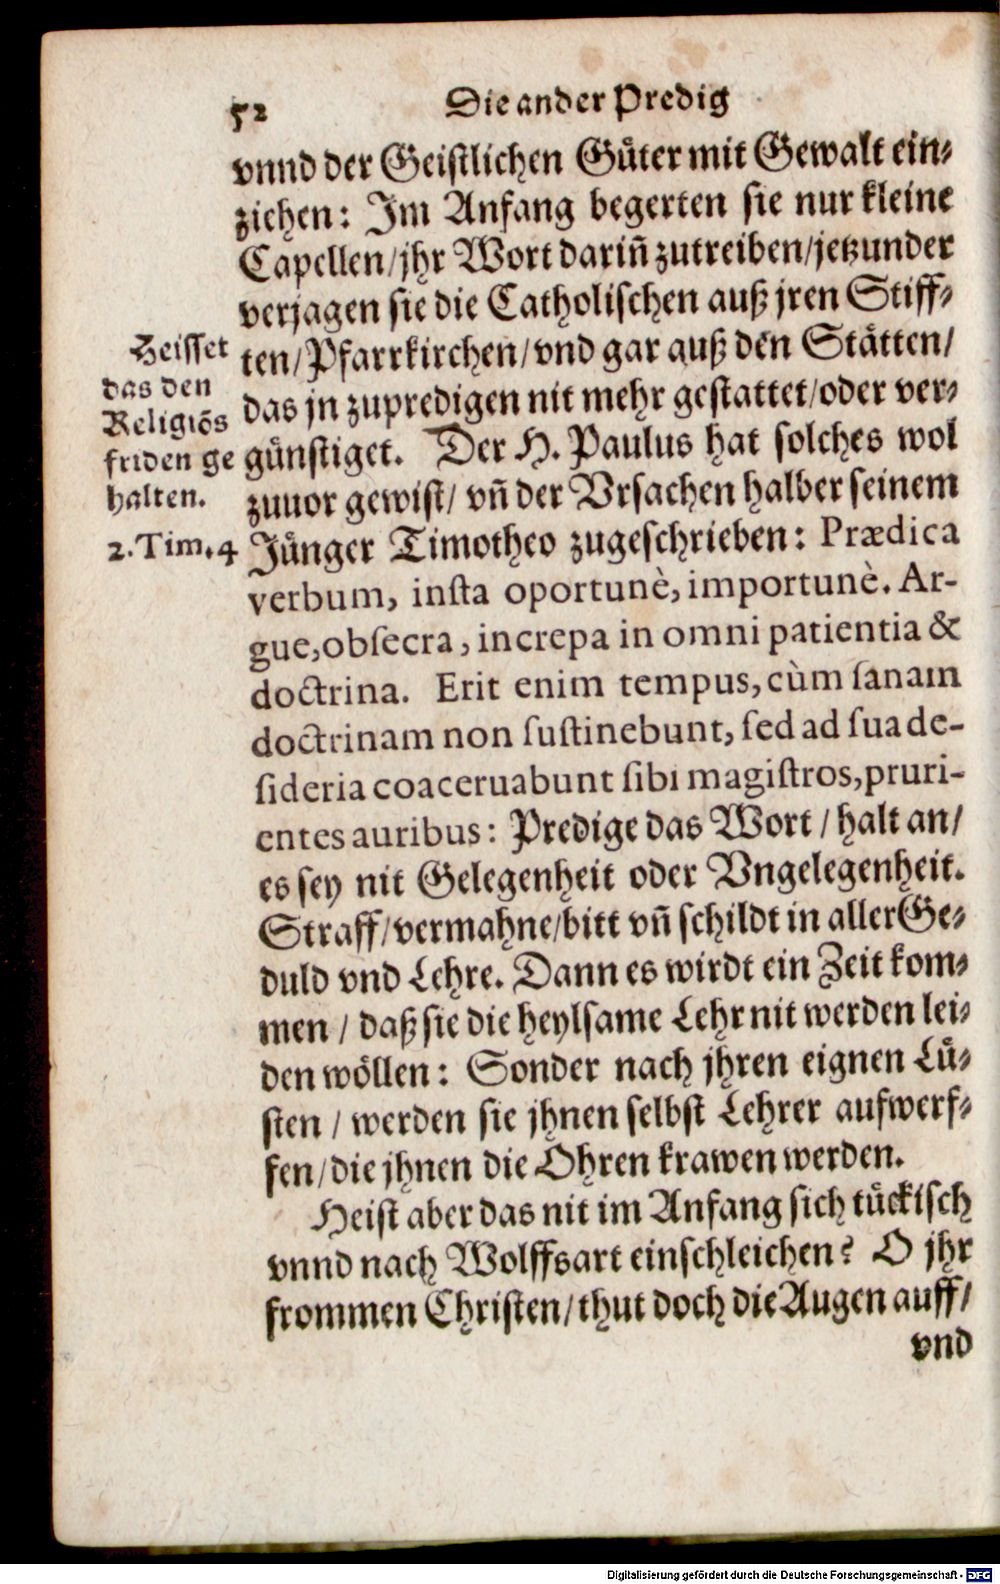 52 Die ander Predig
vnnd der Geistlichen Güter mit Gewalt ein⸗
ziehen: Im Anfang begerten sie nur kleine
Capellen/jhr Wort dariñ zutreiben/jetzunder
verjagen sie die Catholischen auß jren Stiff⸗
ten/Pfarrkirchen/vnd gar auß den Stätten/
das jn zupredigen nit mehr gestattet/oder ver⸗
günstiget. Der H. Paulus hat solches wol
zuuor gewist/ vñ der Vrsachen halber seinem
Jünger Timotheo zugeschrieben: Prædica
verbum, insta oportunè, importunè. Ar-
gue, obsecra, increpa in omni patientia &
doctrina. Erit enim tempus, cùm sanam
doctrinam non sustinebunt, sed ad sua de-
sideria coaceruabunt sibi magistros, pruri-
entes auribus: Predige das Wort / halt an/
es sey nit Gelegenheit oder Vngelegenheit.
Straff/vermahne/bitt vñ schildt in aller Ge⸗
duld vnd Lehre. Dann es wirdt ein Zeit kom⸗
men / daß sie die heylsame Lehr nit werden lei⸗
den wöllen: Sonder nach jhren eignen Lü⸗
sten / werden sie jhnen selbst Lehrer aufwerf⸗
fen/die jhnen die Ohren krawen werden.
Heist aber das nit im Anfang sich tückisch
vnnd nach Wolffsart einschleichen? O jhr
frommen Christen/thut doch die Augen auff/
vnd
Heisset
das den
Religiõs
friden ge
halten.
2. Tim. 4
Digitalisierung gefördert durch die Deutsche Forschungsgemeinschaft - DFG